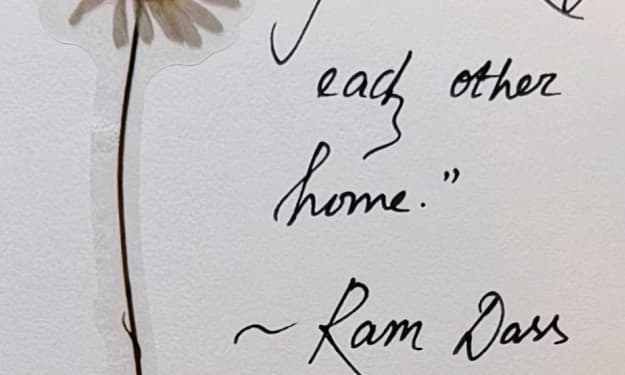 each other
home."
~ Ram Dass